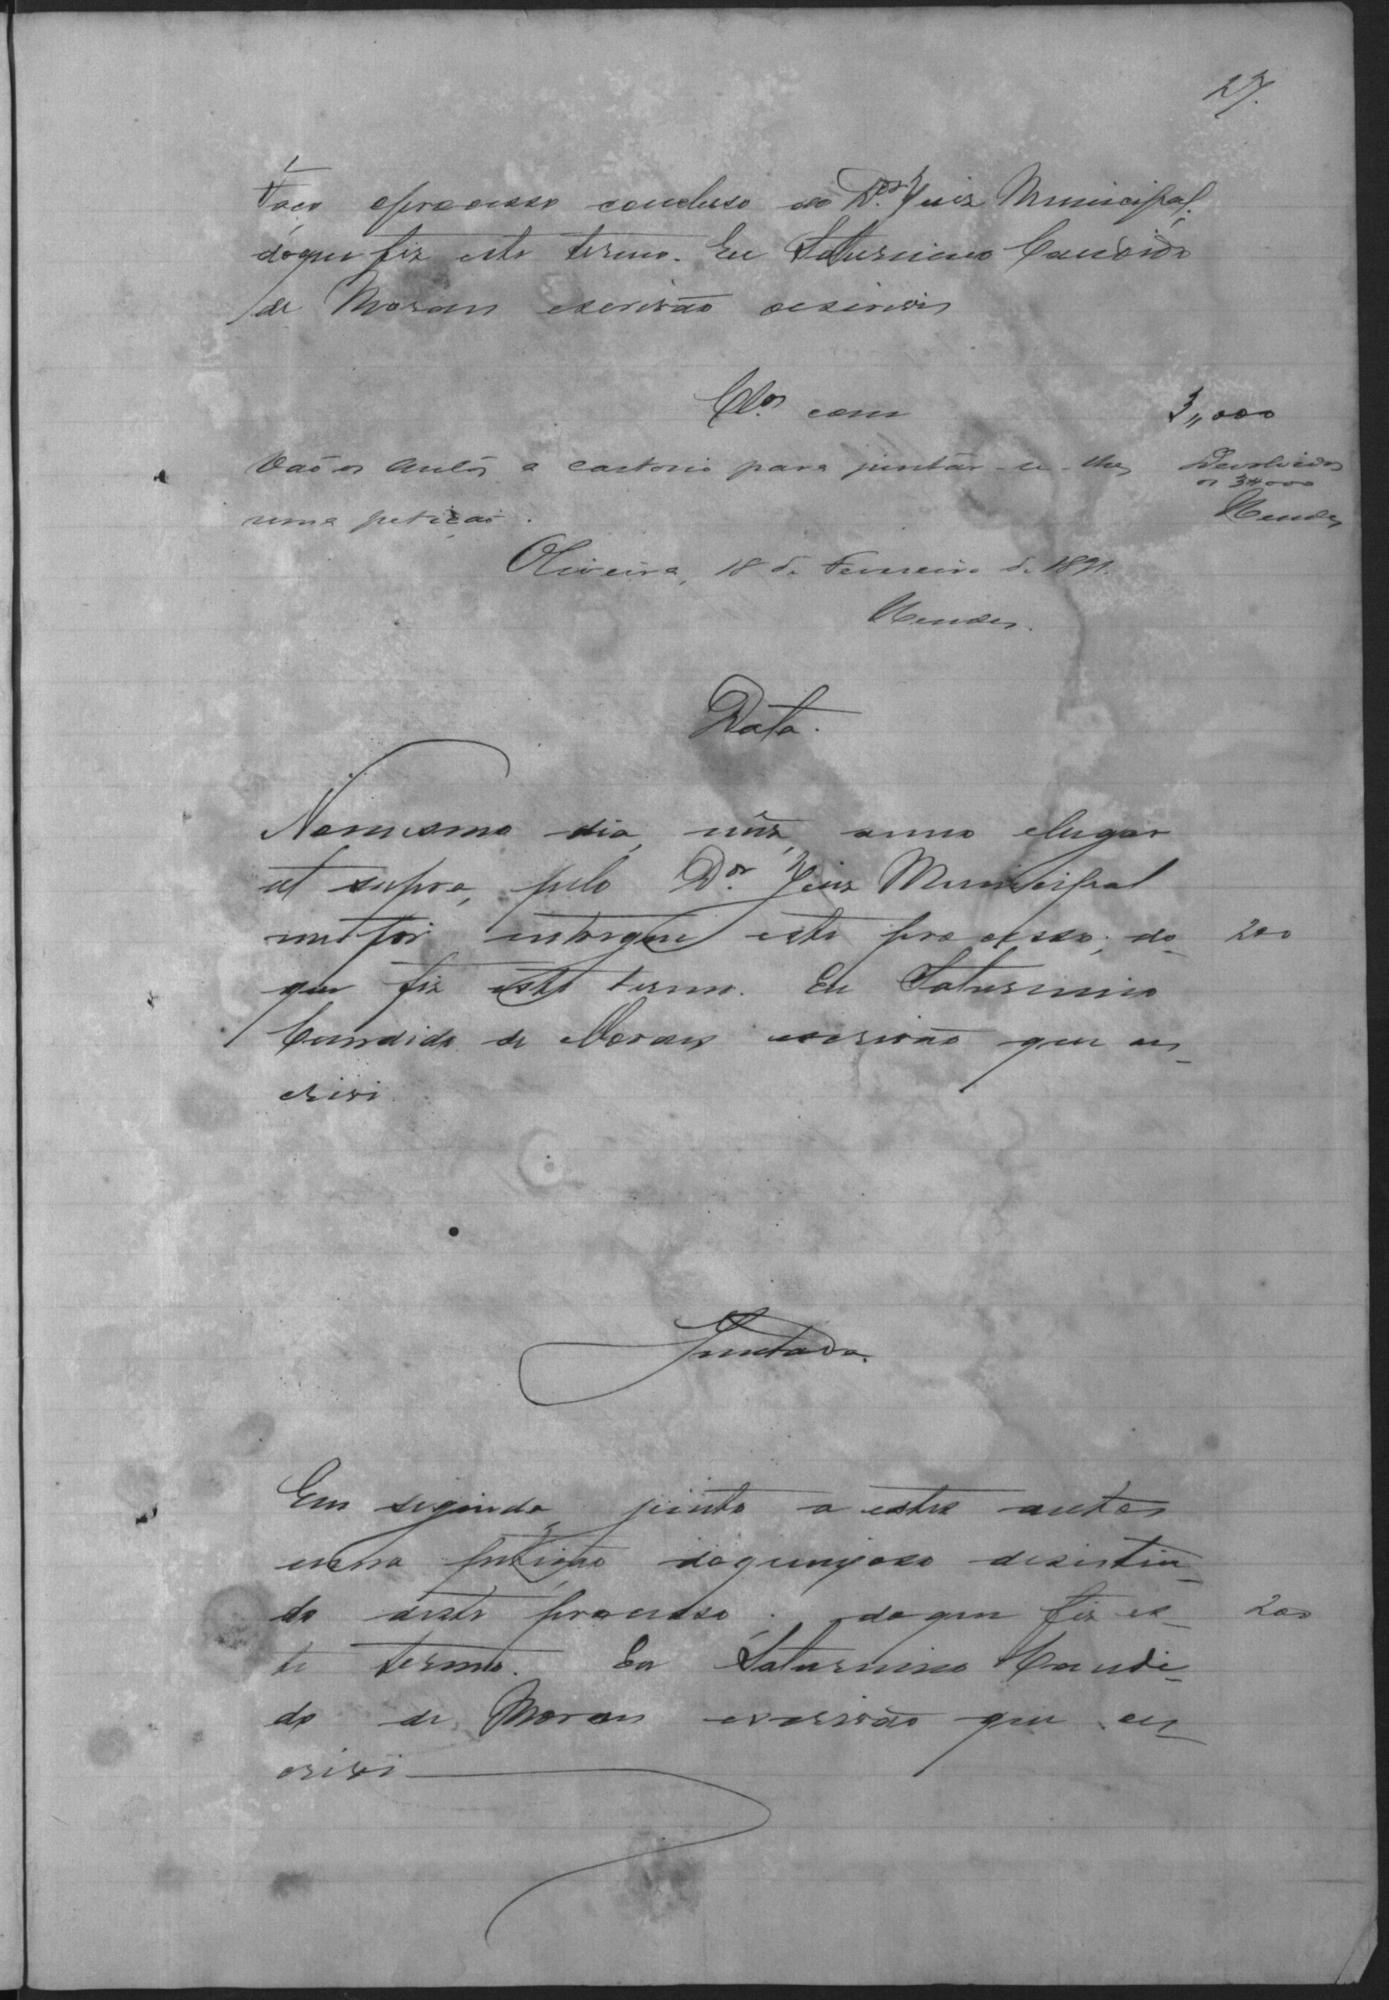 27.
Faço oprocesso concluso ao Dor. Juiz Municipal;
doque fiz este termo. Eu Saturnino Candido
de Moraes escrivão oescrivi
Clos. com 3,,000
Vão os autos a cartorio para juntar-se-lhes Devolvidos
os 3#000
uma petição. Mendes
Oliveira, 18 de Fevereiro de 1891.
Mendes.
Data.
Nomesmo dia, mez, anno elugar
ut supra, pelo Dor. Juiz Municipal
me foi entregue este processo; do 200
que fiz este termo. Eu Saturnino
Candido de Moraes escrivão que es_
crivi
Juntada.
Em seguida junto a estes autos
uma petição desistin_
do deste processo; doque fiz es_ 200
te termo. Eu Saturnino Candi_
do de Moraes escrivão que es_
crivi